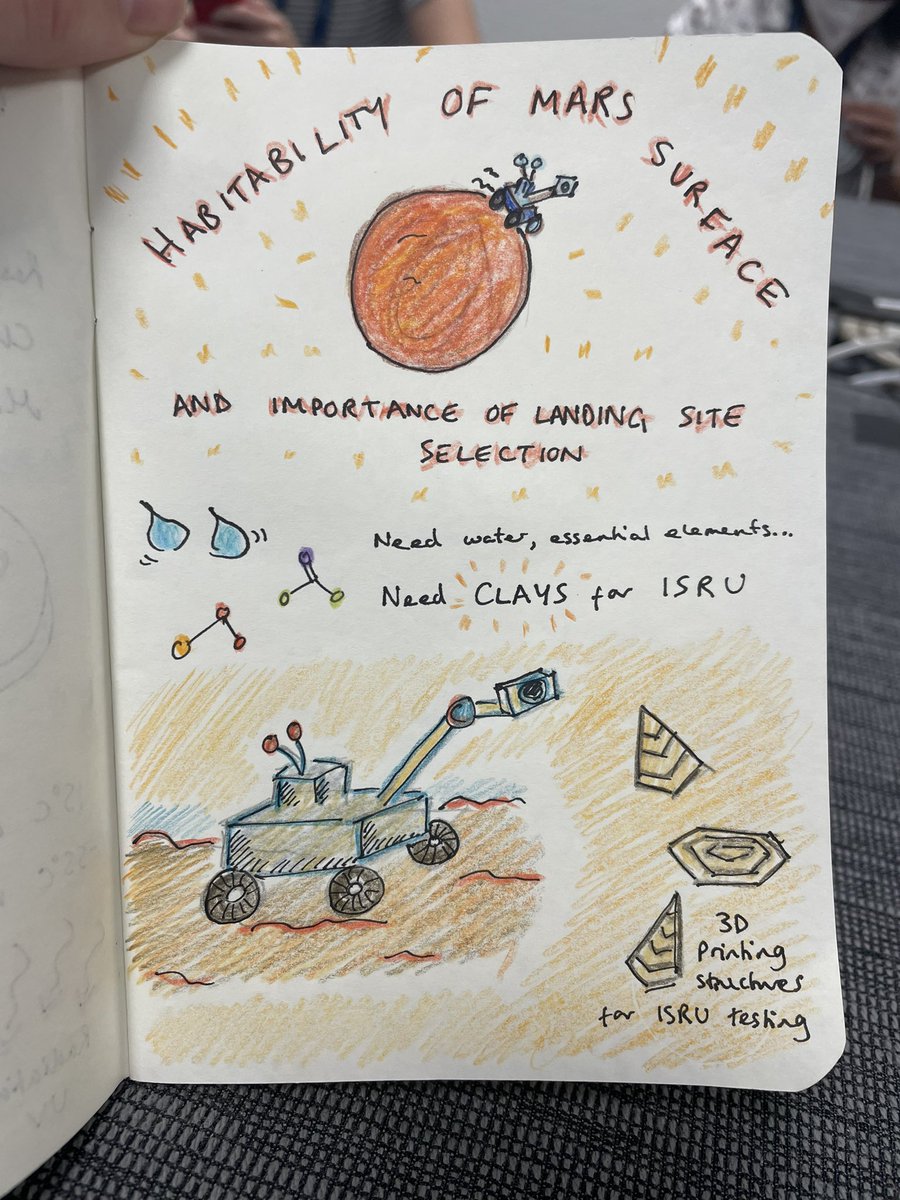 HABITABILITY OF MARS SURFACE
AND IMPORTANCE OF LANDING SITE
SELECTION
Need water, essential elements...
Need CLAYS for ISRU
3D
Printing
structures
for ISRU testing